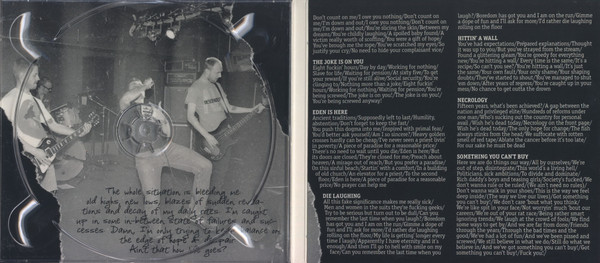 The whole situation is bleeding me
old highs, new lows, blazes of sudden reve
tions and decay of my daily rites. I'm caught
up in some in-between scenes, failures and suc-
cesses. Damn, I'm only trying to keep balance on
the edge of hope & despair.
Ain't that how life goes?
Don't count on me/I owe you nothing/Don't count on
me/I'm down and out/I owe you nothing/Don't count on
me/I'm down and out/You're slicing the skin/Between my
dreams/You're childly laughing/A spoiled baby found/A
victim really worth of scotting/You were a gift of hope/
You've brought me the rope/You've scratched my eyes/So
justify your cry/No need to hide your complaisant vice/
THE JOKE IS ON YOU
Eight fuckin' hours/Day by day/Working for nothing/
Slave for life/Waiting for pension/At sixty five/To get
your reward/If you're still alive/Social security/You're
clinging to/Nothing more than a joke/Eight fuckin'
hours/Working for nothing/Waiting for pension/You're
being screwed/The joke is on you/The joke is on you/
You're being screwed anyway/
EDEN IS HERE
Ancient traditions/Supposedly left to last/Humility,
abstention/Don't forget to keep the fast/
You push this dogma into me/Inspired with primal fear/
You'd better ask yourself/Am I so sincere/Heavy golden
crosses hardly can be cheap/I've never seen a priest livin'
in poverty/A piece of paradise for a reasonable price/
There's no need to wait until you die/Eden is here/But
its doors are closed/They're closed for me/Preach about
heaven/A mirage out of reach/But you prefer a paradise/
On this sinful beach/Startin' with a comfort/In a building
of old church/An elevator for a priest/To the second
floor/Eden is here/A piece of paradise for a reasonable
price/No prayer can help me
DIE LAUGHING
All this fake significance makes me really sick/
Men and women in the suits they're fucking geeks/
Try to be serious but turn out to be dull/Can you
remember the last time when you laugh?/Boredom
has got you and I am on the run/Gimme a dose of
fun and I'll ask for more/I'd rather die laughing
rolling on the floor/My life is getting longer every
time I laugh/Apparently I have eternity and it's
enough/And then I'll go to hell with smile on my
face/Can you remember the last time when you
laugh?/Boredom has got you and I am on the run/Gimme
a dope of fun and I'll ask for more/I'd rather die laughing
rolling on the floor
HITTIN' A WALL
You've had expectations/Prepared explanations/Thought
it was up to you/But you've strayed from the stream/
Found a glittering gleam/You're greedy for everything
new/You're hitting a wall/ Every time is the same/It's a
recipe/So can't you see?/You're hitting a wall/It's just
the same/Your own fault/Your only shame/Your shaping
doubts/They're started to shout/You've managed to shut
'em down/After years of repeat/You're caught up in your
mess/No chance to get outta the drown
NECROLOGY
Fifteen years, what's been achieved?/A gap between the
nation and privileged elite/Hundreds of reforms under
one man/Who's sucking out the country for personal
need /Wish he's dead today/Necrology on the front page/
Wish he's dead today/The only hope for change/The fish
always stinks from the head/We suffocate with rotten
smell of red tape/Ablate the cancer before it's too late/
For our sake he must be dead
SOMETHING YOU CAN'T BUY
Here we are do things our way/All by ourselves/We're
out of step, disintegrate/This world's a tiring hell/
Politicians, sick ambitions/To divide and dominate/
Rich daddy's boys and teasing girls/Society's fucked/We
don't wanna role or be ruled/(We don't need no rules)/
Don't wanna walk in your shoes/(This is the way we feel
deep inside)/(The way we live our lives)/Got something
you can't buy/We don't care 'bout what you think/
We're like spit in your face/Not worryin' much 'bout our
careers/We're out of your rat race/Being rather smart
ignoring trends/We laugh at the crowd of fools/We find
some ways to get by/And we are far from done/Friends
through the years/Through the bad times and the
good/We've had a lot of fun/And we've been pissed and
screwed/We still believe in what we do/Still do what we
believe in/And we've got something you can't buy/(Got
something you can't buy)/Fuck you!/